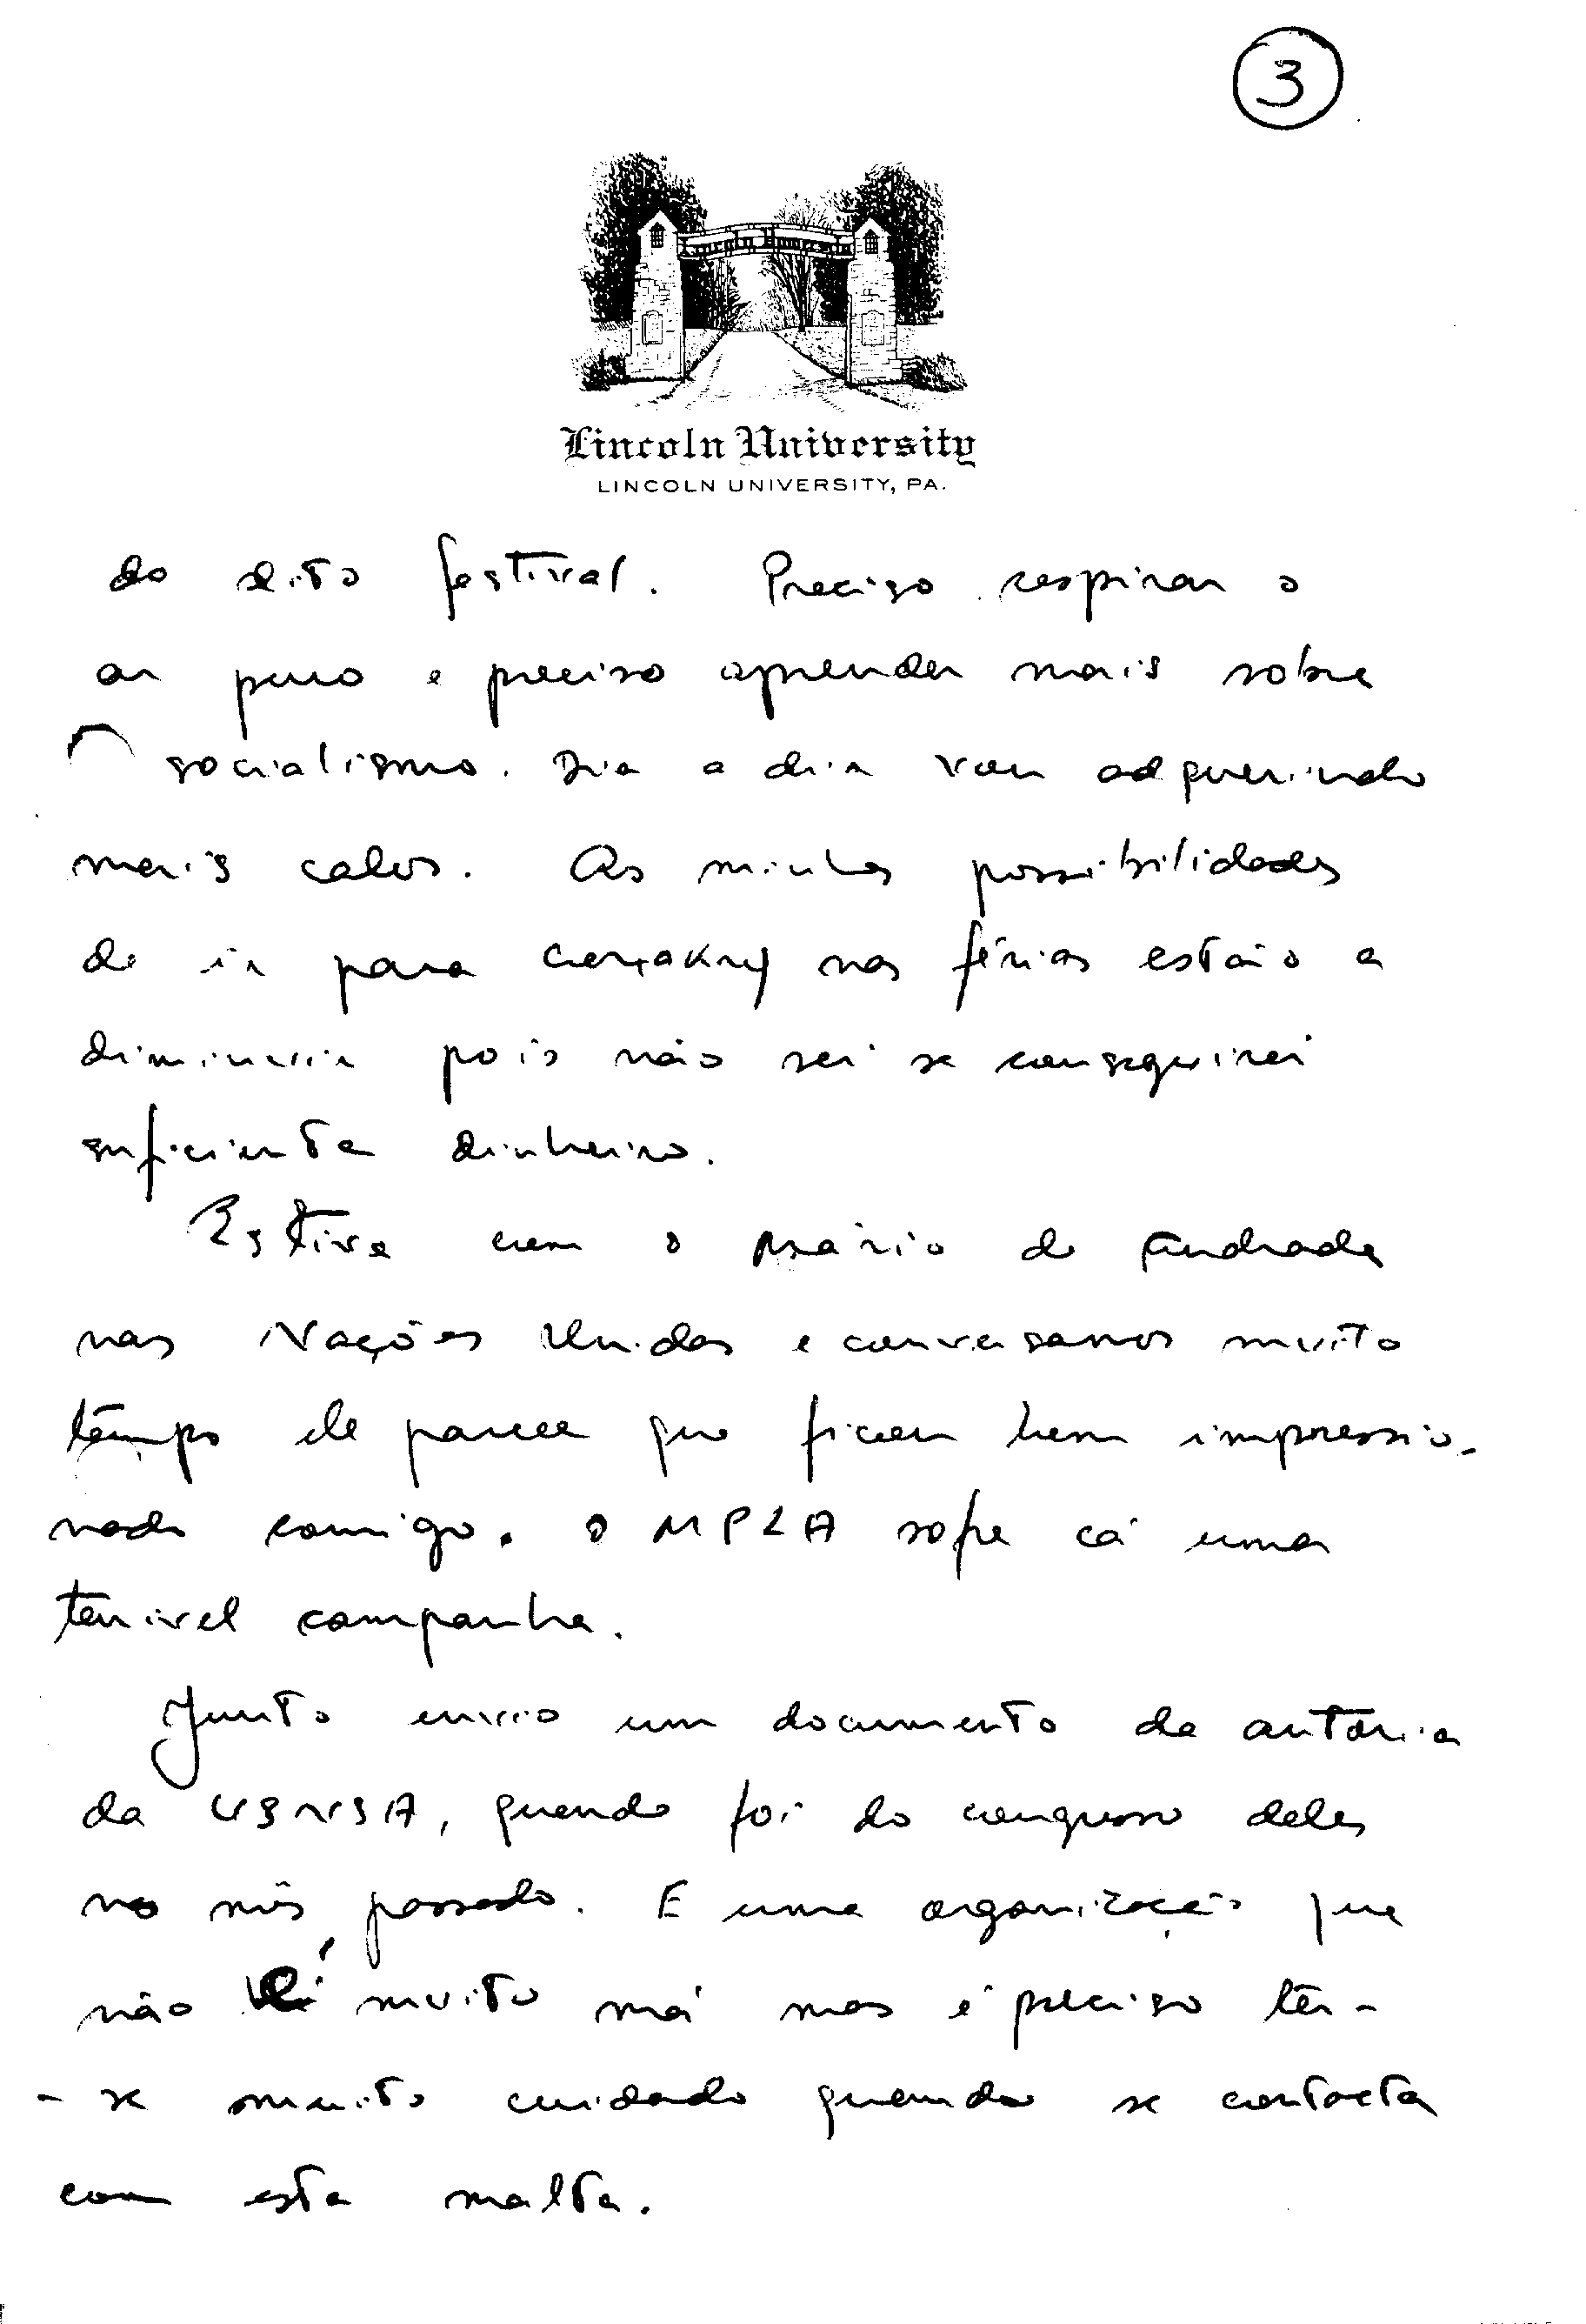 3
Lincoln University
Lincoln University
LINCOLN UNIVERSITY, PA.
do dito festival. Preciso respirar o
ar puro e preciso aprender mais sobre
socialismo. Dia a dia vou adquerindo
mais calos. As minhas possibilidades
de ir para Conakry nas férias estão a
diminuir pois não sei se conseguirei
suficiente dinheiro.
Estive com o Mário de Andrade
nas Nações Unidas e conversamos muito
tempo ele parece que ficou bem impressio-
nado comigo. O MPLA sofre cá uma
terrivel campanha.
Junto envio um documento de autoria
da USNSA, quando foi do congresso deles
no mês passado. E uma organização que
não é muito má mas é preciso ter-
-se muito cuidado quando se contacta
com esta malta.